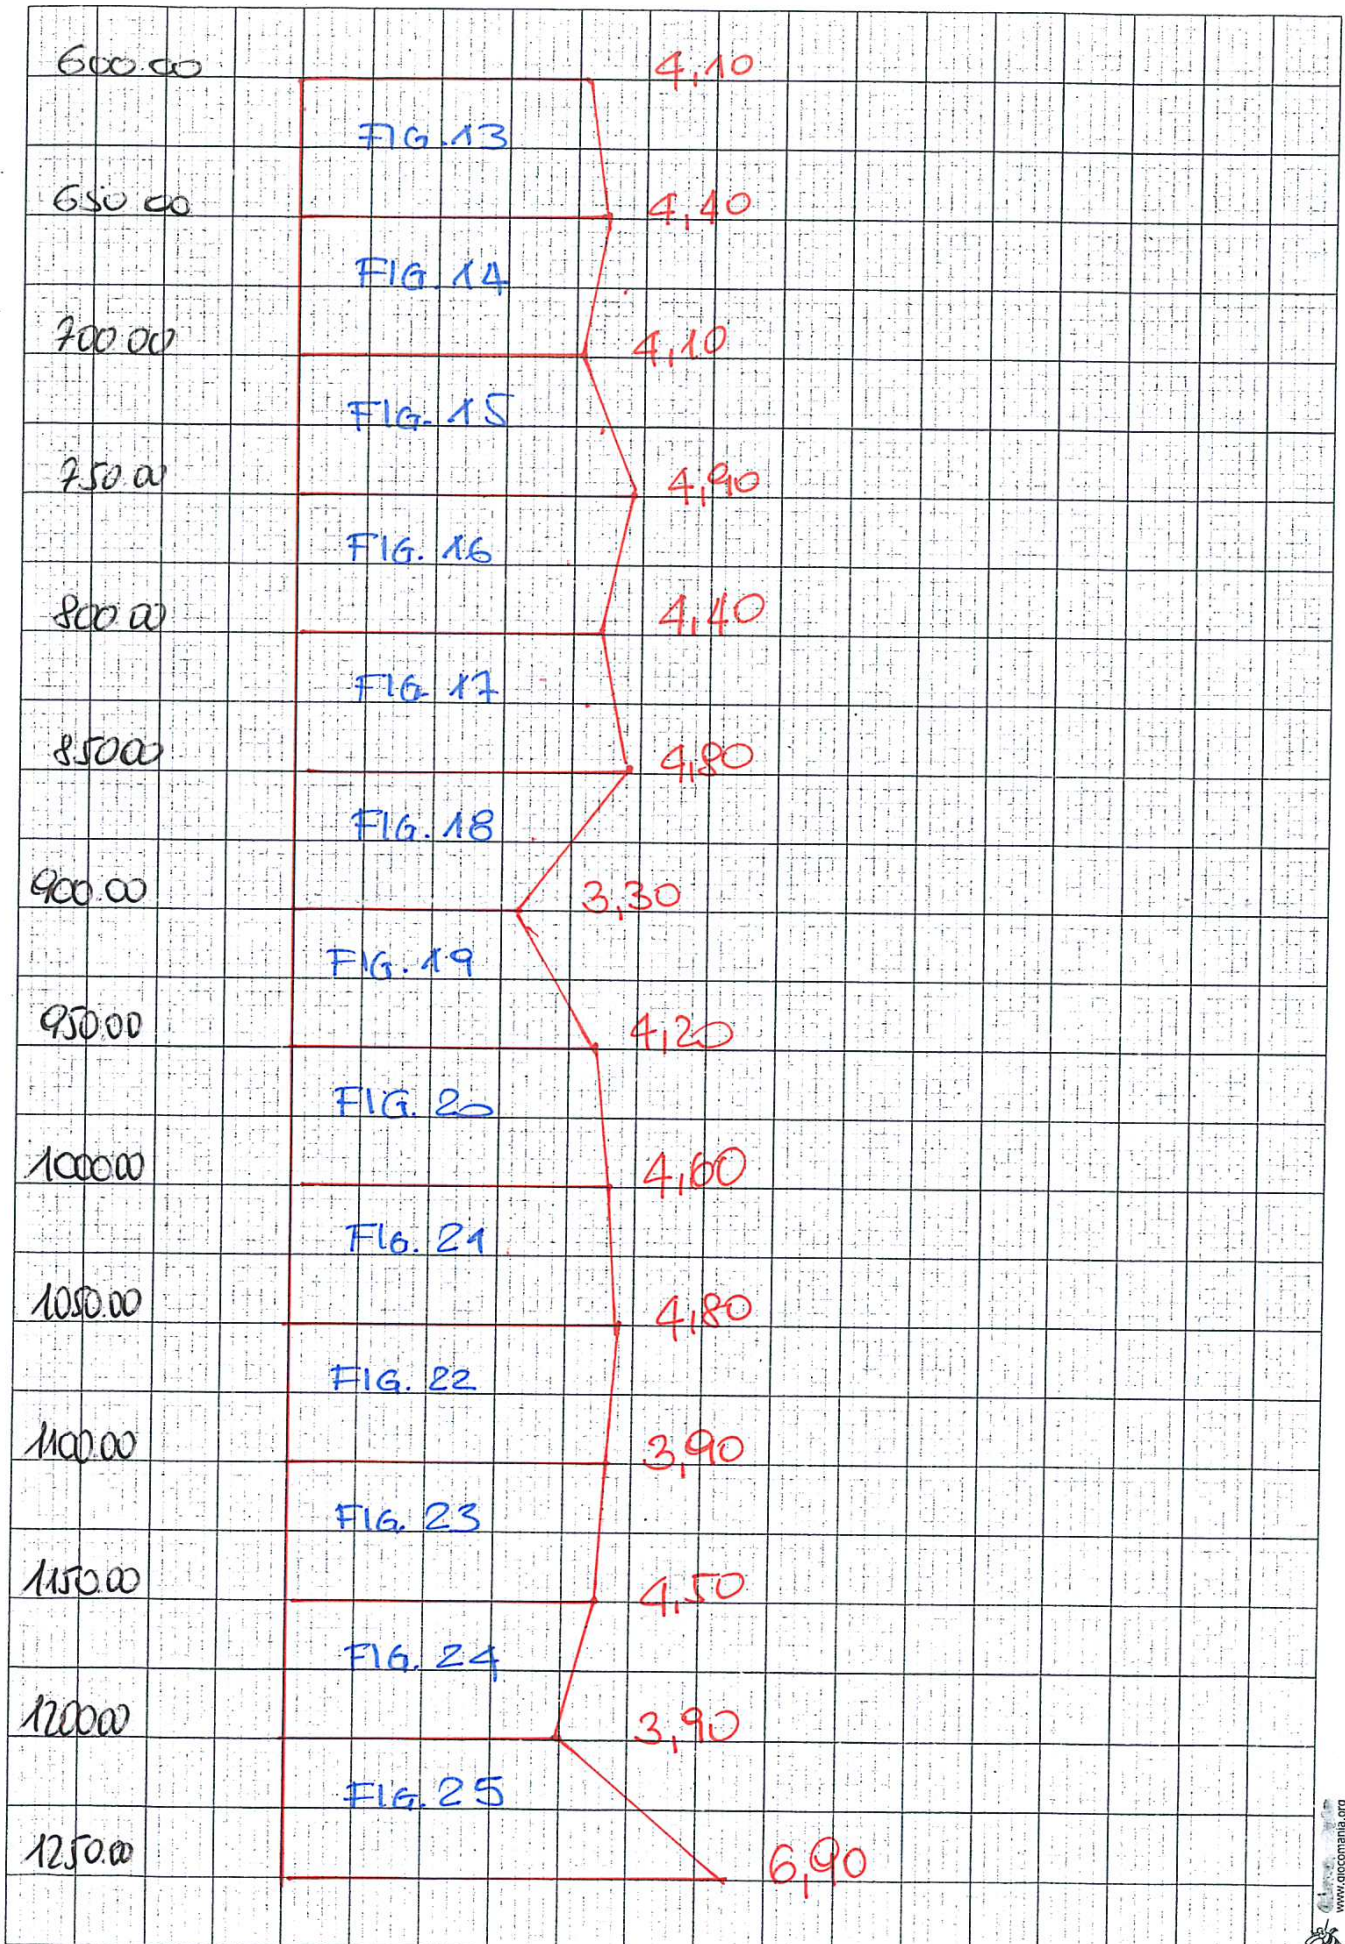 600.00 4,10
FIG. 13
650.00 4,40
FIG. 14
700.00 4,10
FIG. 15
750.00 4,90
FIG. 16
800.00 4,40
FIG. 17
850.00 4,80
FIG. 18
900.00 3,30
FIG. 19
950.00 4,20
FIG. 20
1000.00 4,60
FIG. 21
1050.00 4,80
FIG. 22
1100.00 3,90
FIG. 23
1150.00 4,50
FIG. 24
1200.00 3,90
FIG. 25
1250.00 6,90
www.giocomania.org